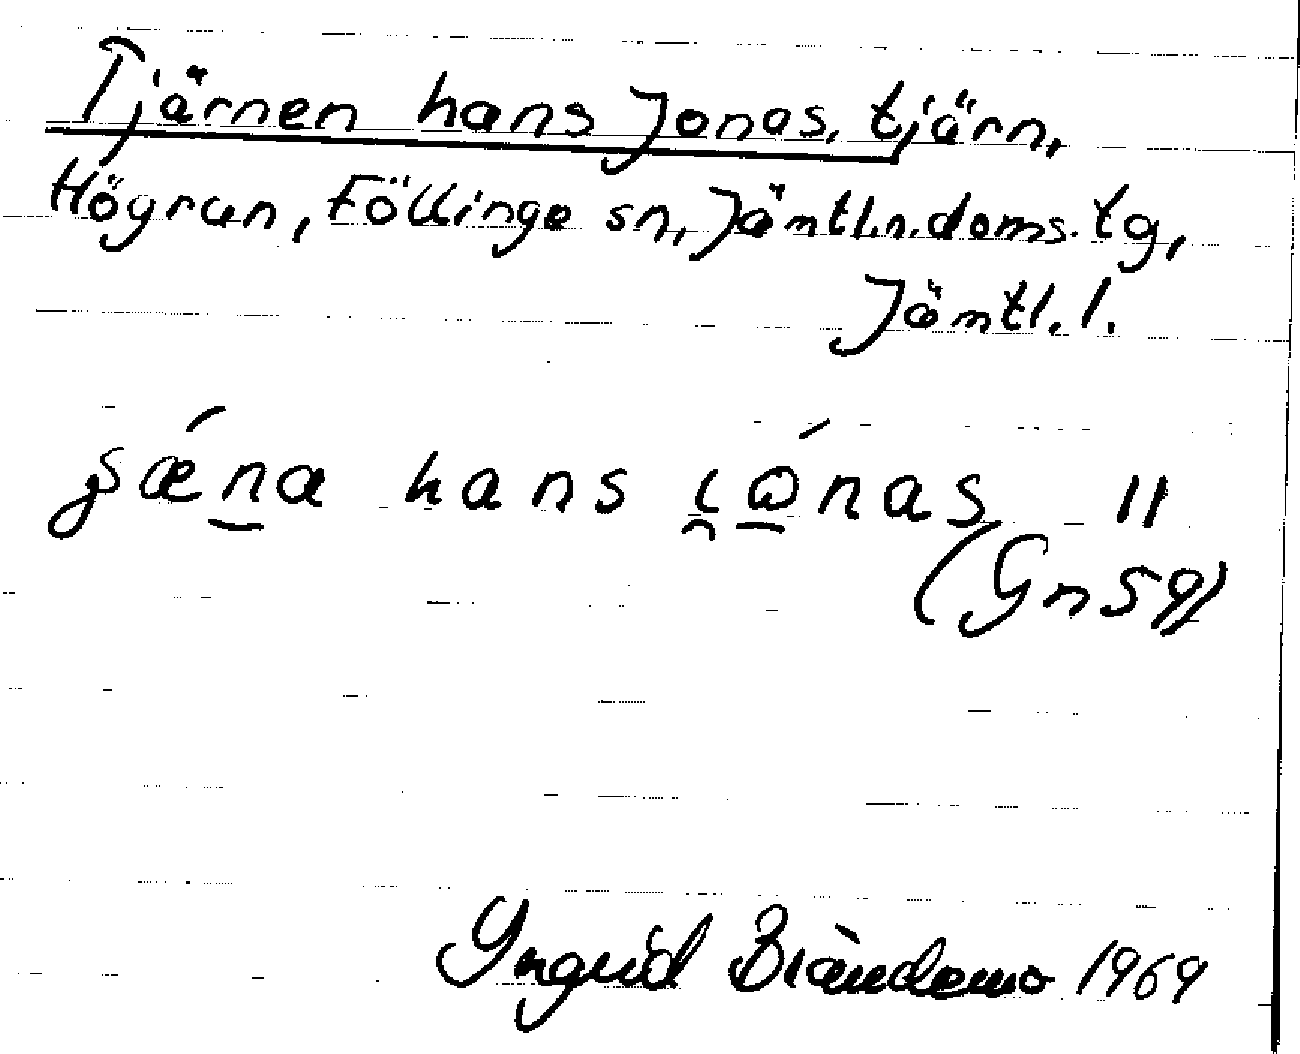 Tjärnen hans Jonas, tjärn,
Högrun, Föllinge sn, Jämtl.n.doms.tg,
Jämtl.l.
hans ||
(Gn 59)
Ingrid Brändemo 1969